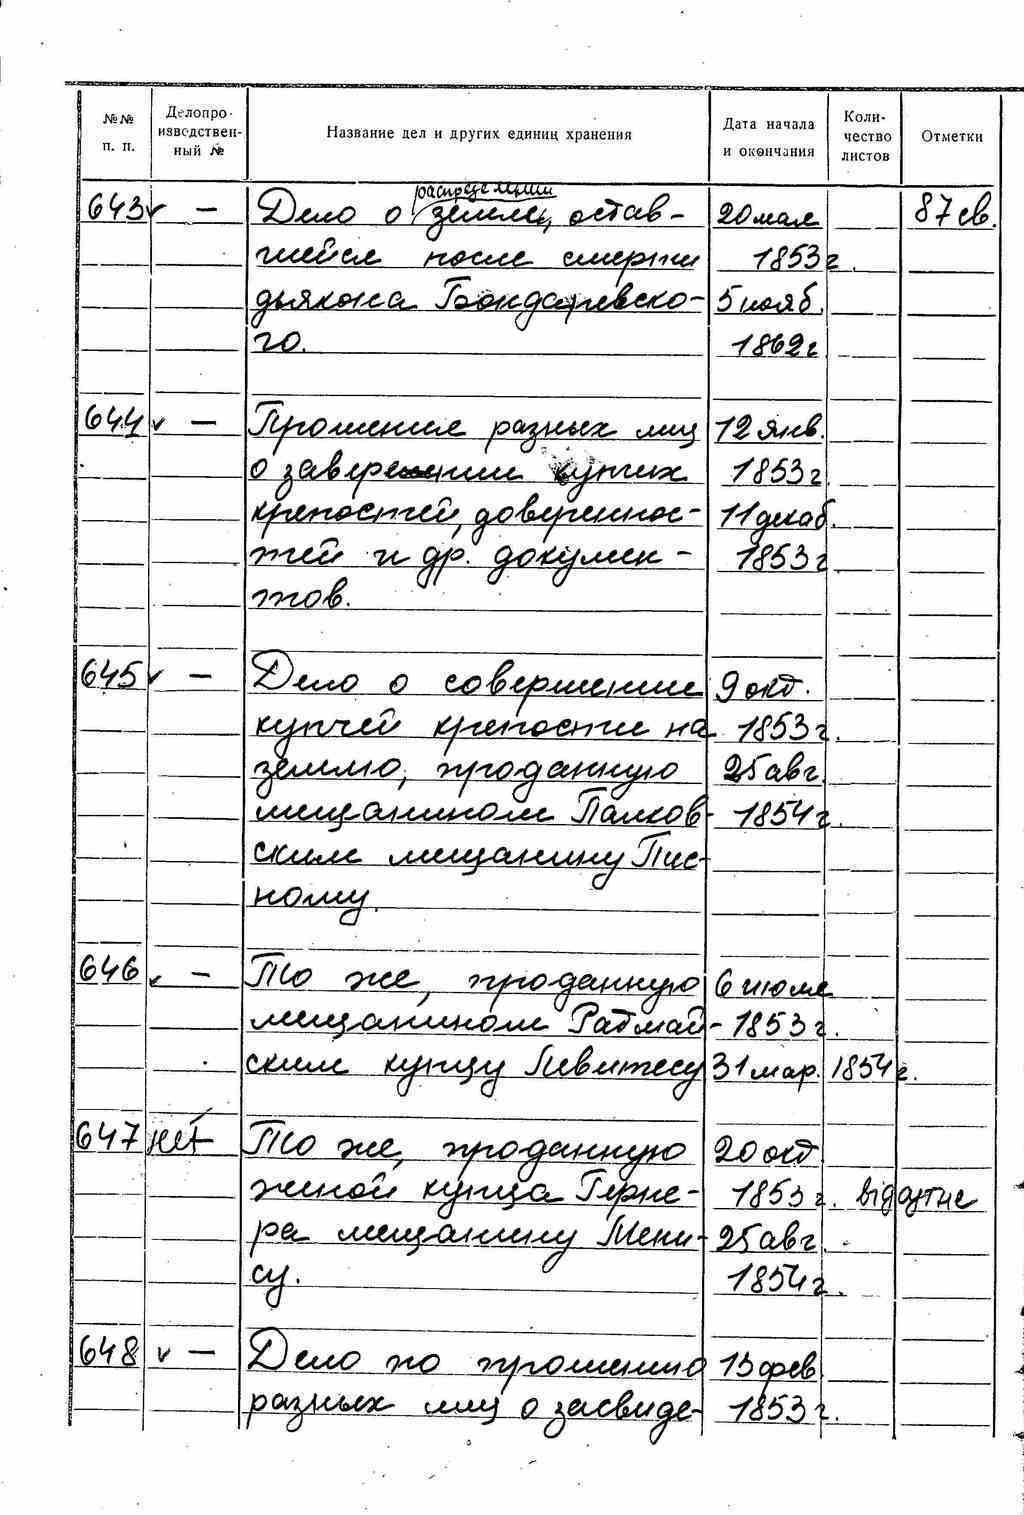 №№ п. п. Делопроизводственный № Название дел и других единиц хранения Дата начала и окончания Количество листов Отметки
распределении
643 ✓ — Дело о земле, остав- 20 мая 87 св.
шейся после смерти 1853 г.
дьякона Бондаревско- 5 нояб.
го. 1862 г
644 ✓ — Прошение разных лиц 12 янв.
о заверении купчих 1853 г.
крепостей, доверенос- 11 декаб.
тей и др. докумен- 1853 г
тов.
645 ✓ — Дело о совершение 9 окт.
купчей крепости на 1853 г.
землю, проданную 25 авг.
мещанином Палков- 1854 г.
ским мещанину Пис-
ному.
646 ✓ — То же, проданную 6 июля
мещанином Ратмай- 1853 г.
ским купцу Левитесу 31 мар. 1854 г.
647 нет То же, проданную 20 окт
женой купца Герне- 1853 г. відсутнє
ра мещанину Мени- 25 авг.
су. 1854 г.
648 ✓ — Дело по прошению 13 фев.
разных лиц о засвиде- 1853 г.